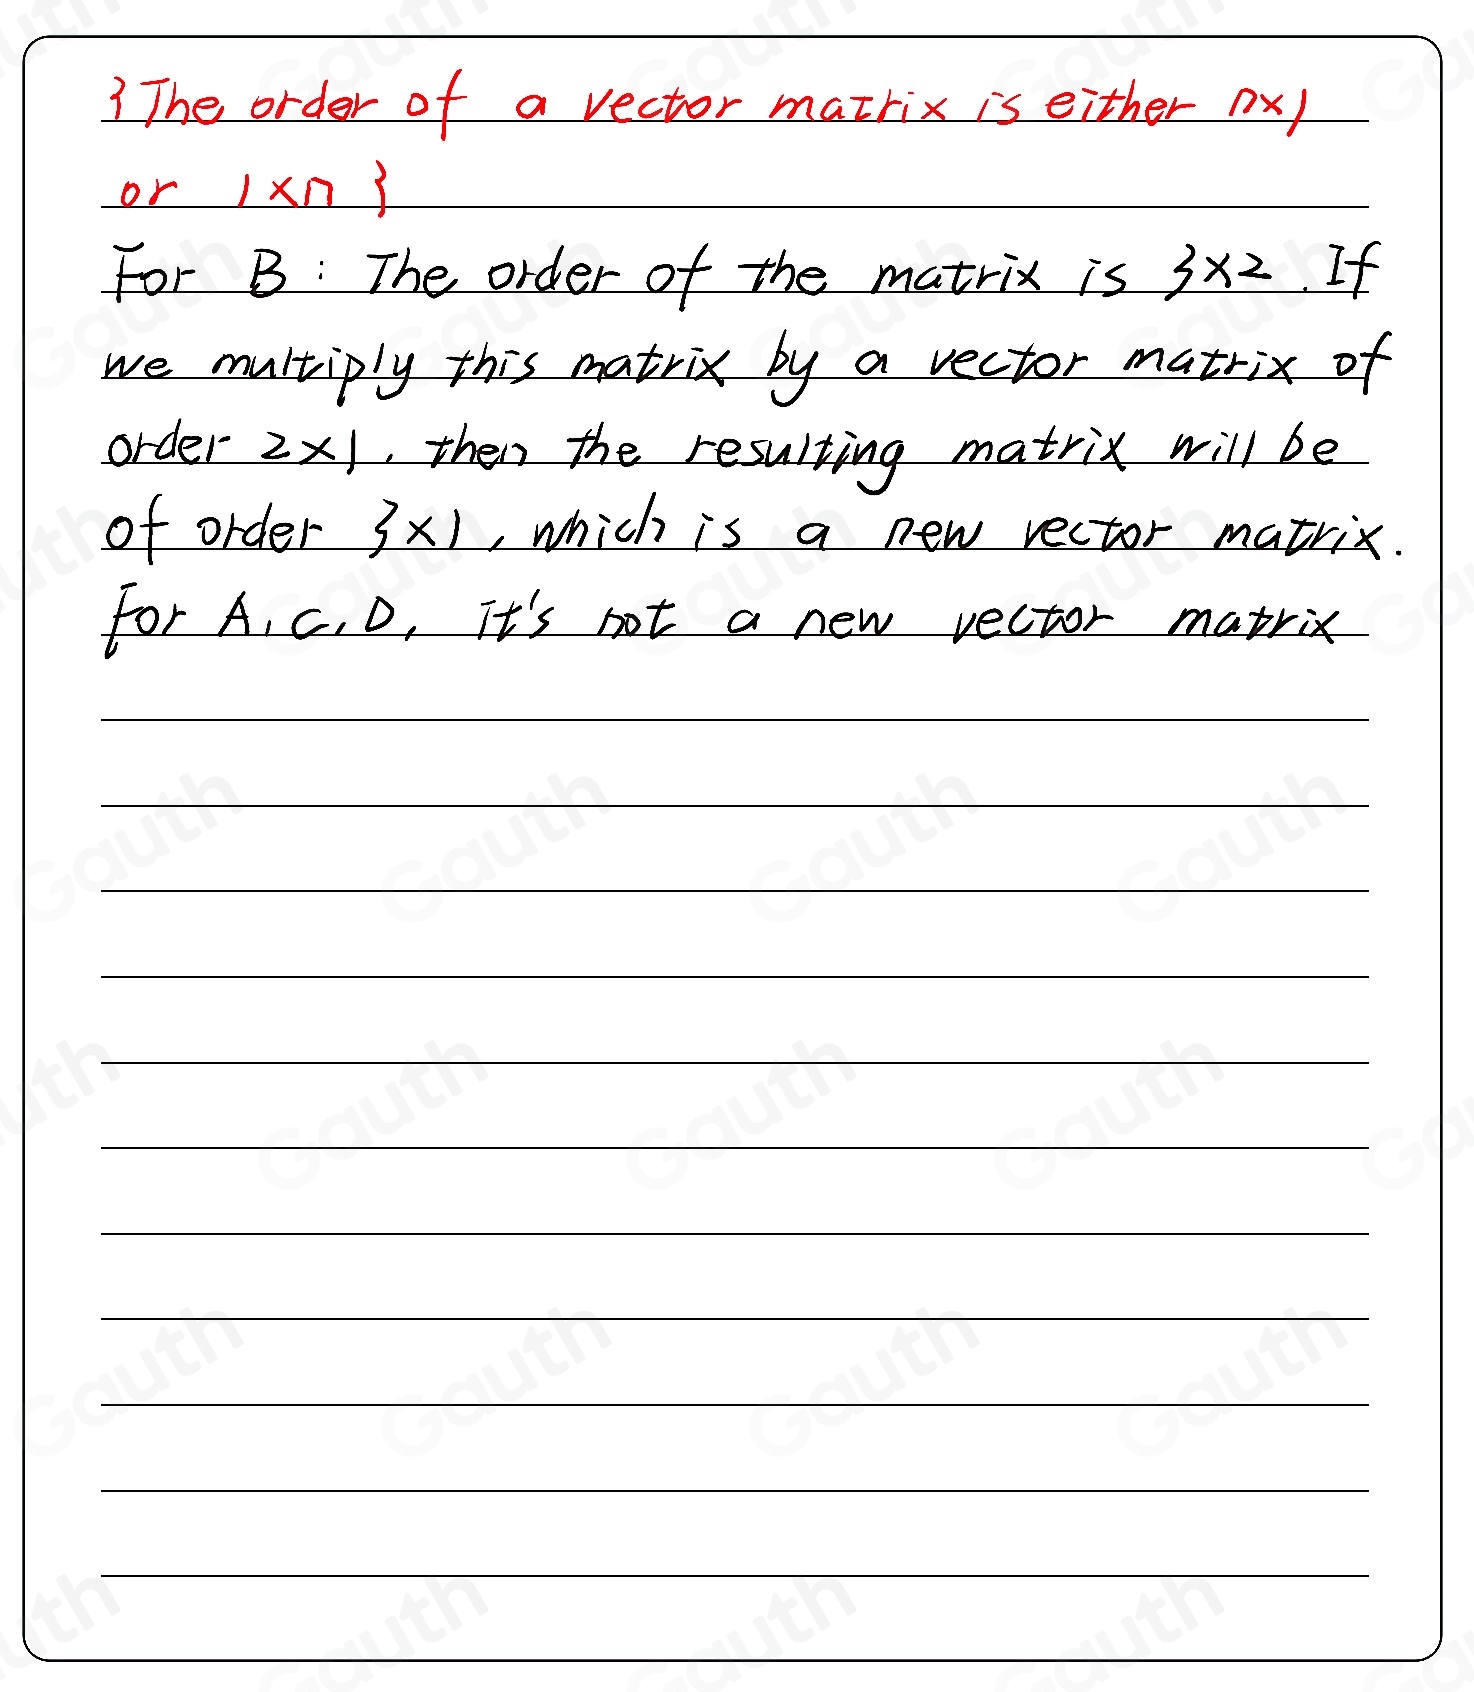 {The order of a vector matrix is either n×1
or 1×n}
For B: The order of the matrix is 3×2. If
we multiply this matrix by a vector matrix of
order 2×1, then the resulting matrix will be
of order 3×1, which is a new vector matrix.
for A, C, D, it's not a new vector matrix